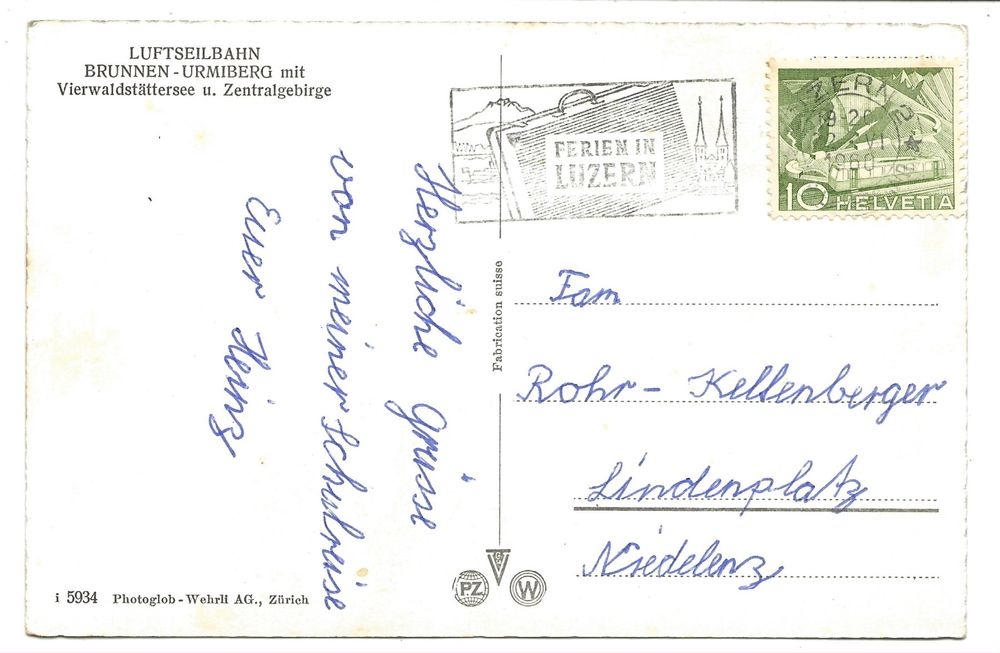 LUFTSEILBAHN
BRUNNEN - URMIBERG mit
Vierwaldstättersee u. Zentralgebirge
FERIEN IN
LUZERN
LUZERN 2
1960
10 HELVETIA
Herzliche Grüsse
von meiner Schulreise
Euer Heinz
Fabrication suisse
Fam
Rohr - Kellenberger
Lindenplatz
Niedelenz
PZ
W
i 5934 Photoglob - Wehrli AG., Zürich